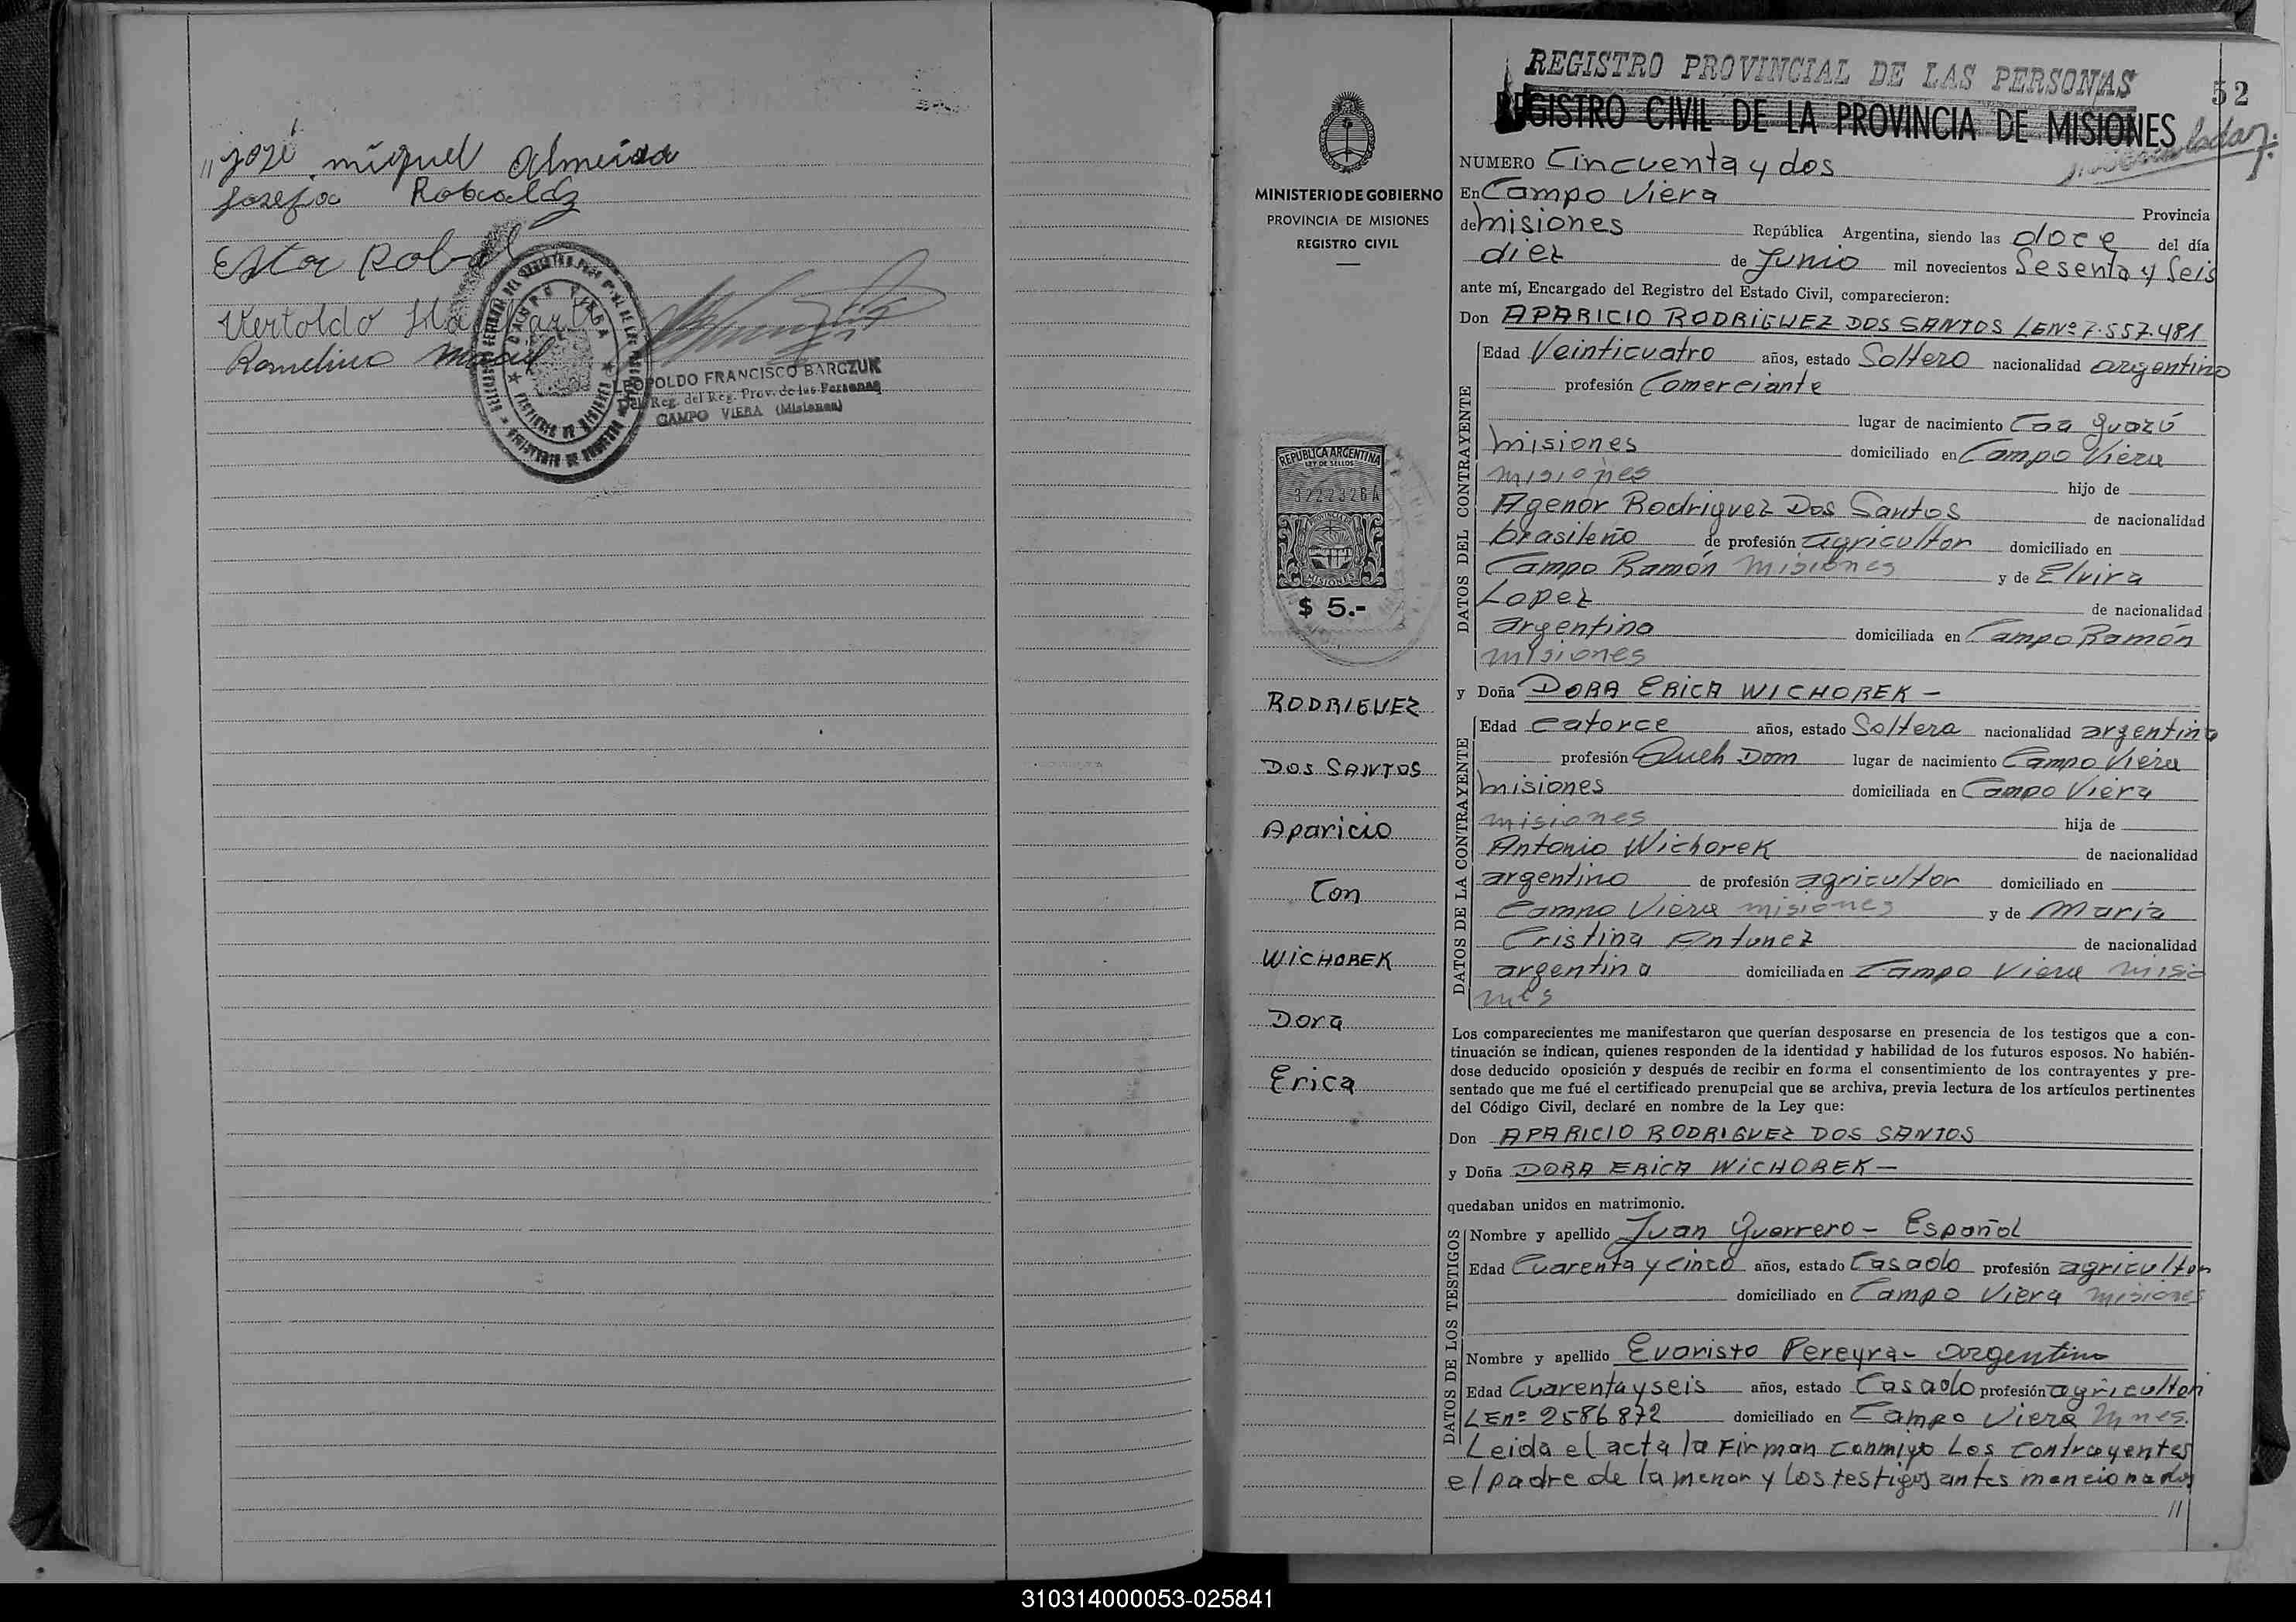 // José miguel Almeida
Josefa Robaldz
Ester Robal
Vertoldo
Romelino
LEOPOLDO FRANCISCO BARCZUK
Del. Reg. del Reg. Prov. de las Personas
CAMPO VIERA (Misiones)
REGISTRO PROVINCIAL DE LAS PERSONAS
REGISTRO CIVIL DE LA PROVINCIA DE MISIONES
52
MINISTERIO DE GOBIERNO
PROVINCIA DE MISIONES
REGISTRO CIVIL
REPUBLICA ARGENTINA
LEY DE SELLOS
3222326A
PROVINCIA DE
MISIONES
$ 5.-
RODRIGUEZ
DOS SANTOS
Aparicio
Con
WICHOREK
Dora
Erica
NUMERO Cincuenta y dos
En Campo Viera Provincia
de Misiones República Argentina, siendo las doce del día
diez de Junio mil novecientos Sesenta y Seis
ante mí, Encargado del Registro del Estado Civil, comparecieron:
Don APARICIO RODRIGUEZ DOS SANTOS LENº 7.557.481
DATOS DEL CONTRAYENTE
Edad Veinticuatro años, estado Soltero nacionalidad argentino
profesión Comerciante
lugar de nacimiento Caa Guazú
Misiones domiciliado en Campo Viera
misiones hijo de
Agenor Rodriguez Dos Santos de nacionalidad
brasileño de profesión agricultor domiciliado en
Campo Ramón Misiones y de Elvira
Lopez de nacionalidad
argentina domiciliada en Campo Ramón
misiones
y Doña DORA ERICA WICHOREK -
DATOS DE LA CONTRAYENTE
Edad Catorce años, estado Soltera nacionalidad argentina
profesión Queh Dom lugar de nacimiento Campo Viera
Misiones domiciliada en Campo Viera
misiones hija de
Antonio Wichorek de nacionalidad
argentino de profesión agricultor domiciliado en
Campo Viera misiones y de Maria
Cristina Antunez de nacionalidad
argentina domiciliada en Campo Viera Misio
nes
Los comparecientes me manifestaron que querían desposarse en presencia de los testigos que a con-
tinuación se indican, quienes responden de la identidad y habilidad de los futuros esposos. No habién-
dose deducido oposición y después de recibir en forma el consentimiento de los contrayentes y pre-
sentado que me fué el certificado prenupcial que se archiva, previa lectura de los artículos pertinentes
del Código Civil, declaré en nombre de la Ley que:
Don APARICIO RODRIGUEZ DOS SANTOS
y Doña DORA ERICA WICHOREK -
quedaban unidos en matrimonio.
DATOS DE LOS TESTIGOS
Nombre y apellido Juan Guerrero - Español
Edad Cuarenta y cinco años, estado Casado profesión agricultor
domiciliado en Campo Viera misiones
Nombre y apellido Evaristo Pereyra - argentino
Edad Cuarenta y seis años, estado Casado profesión agricultor
LEnº 2586872 domiciliado en Campo Viera Mnes.
Leida el acta la Firman conmigo Los contrayentes
el padre de la menor y los testigos antes mencionados
//
310314000053-025841